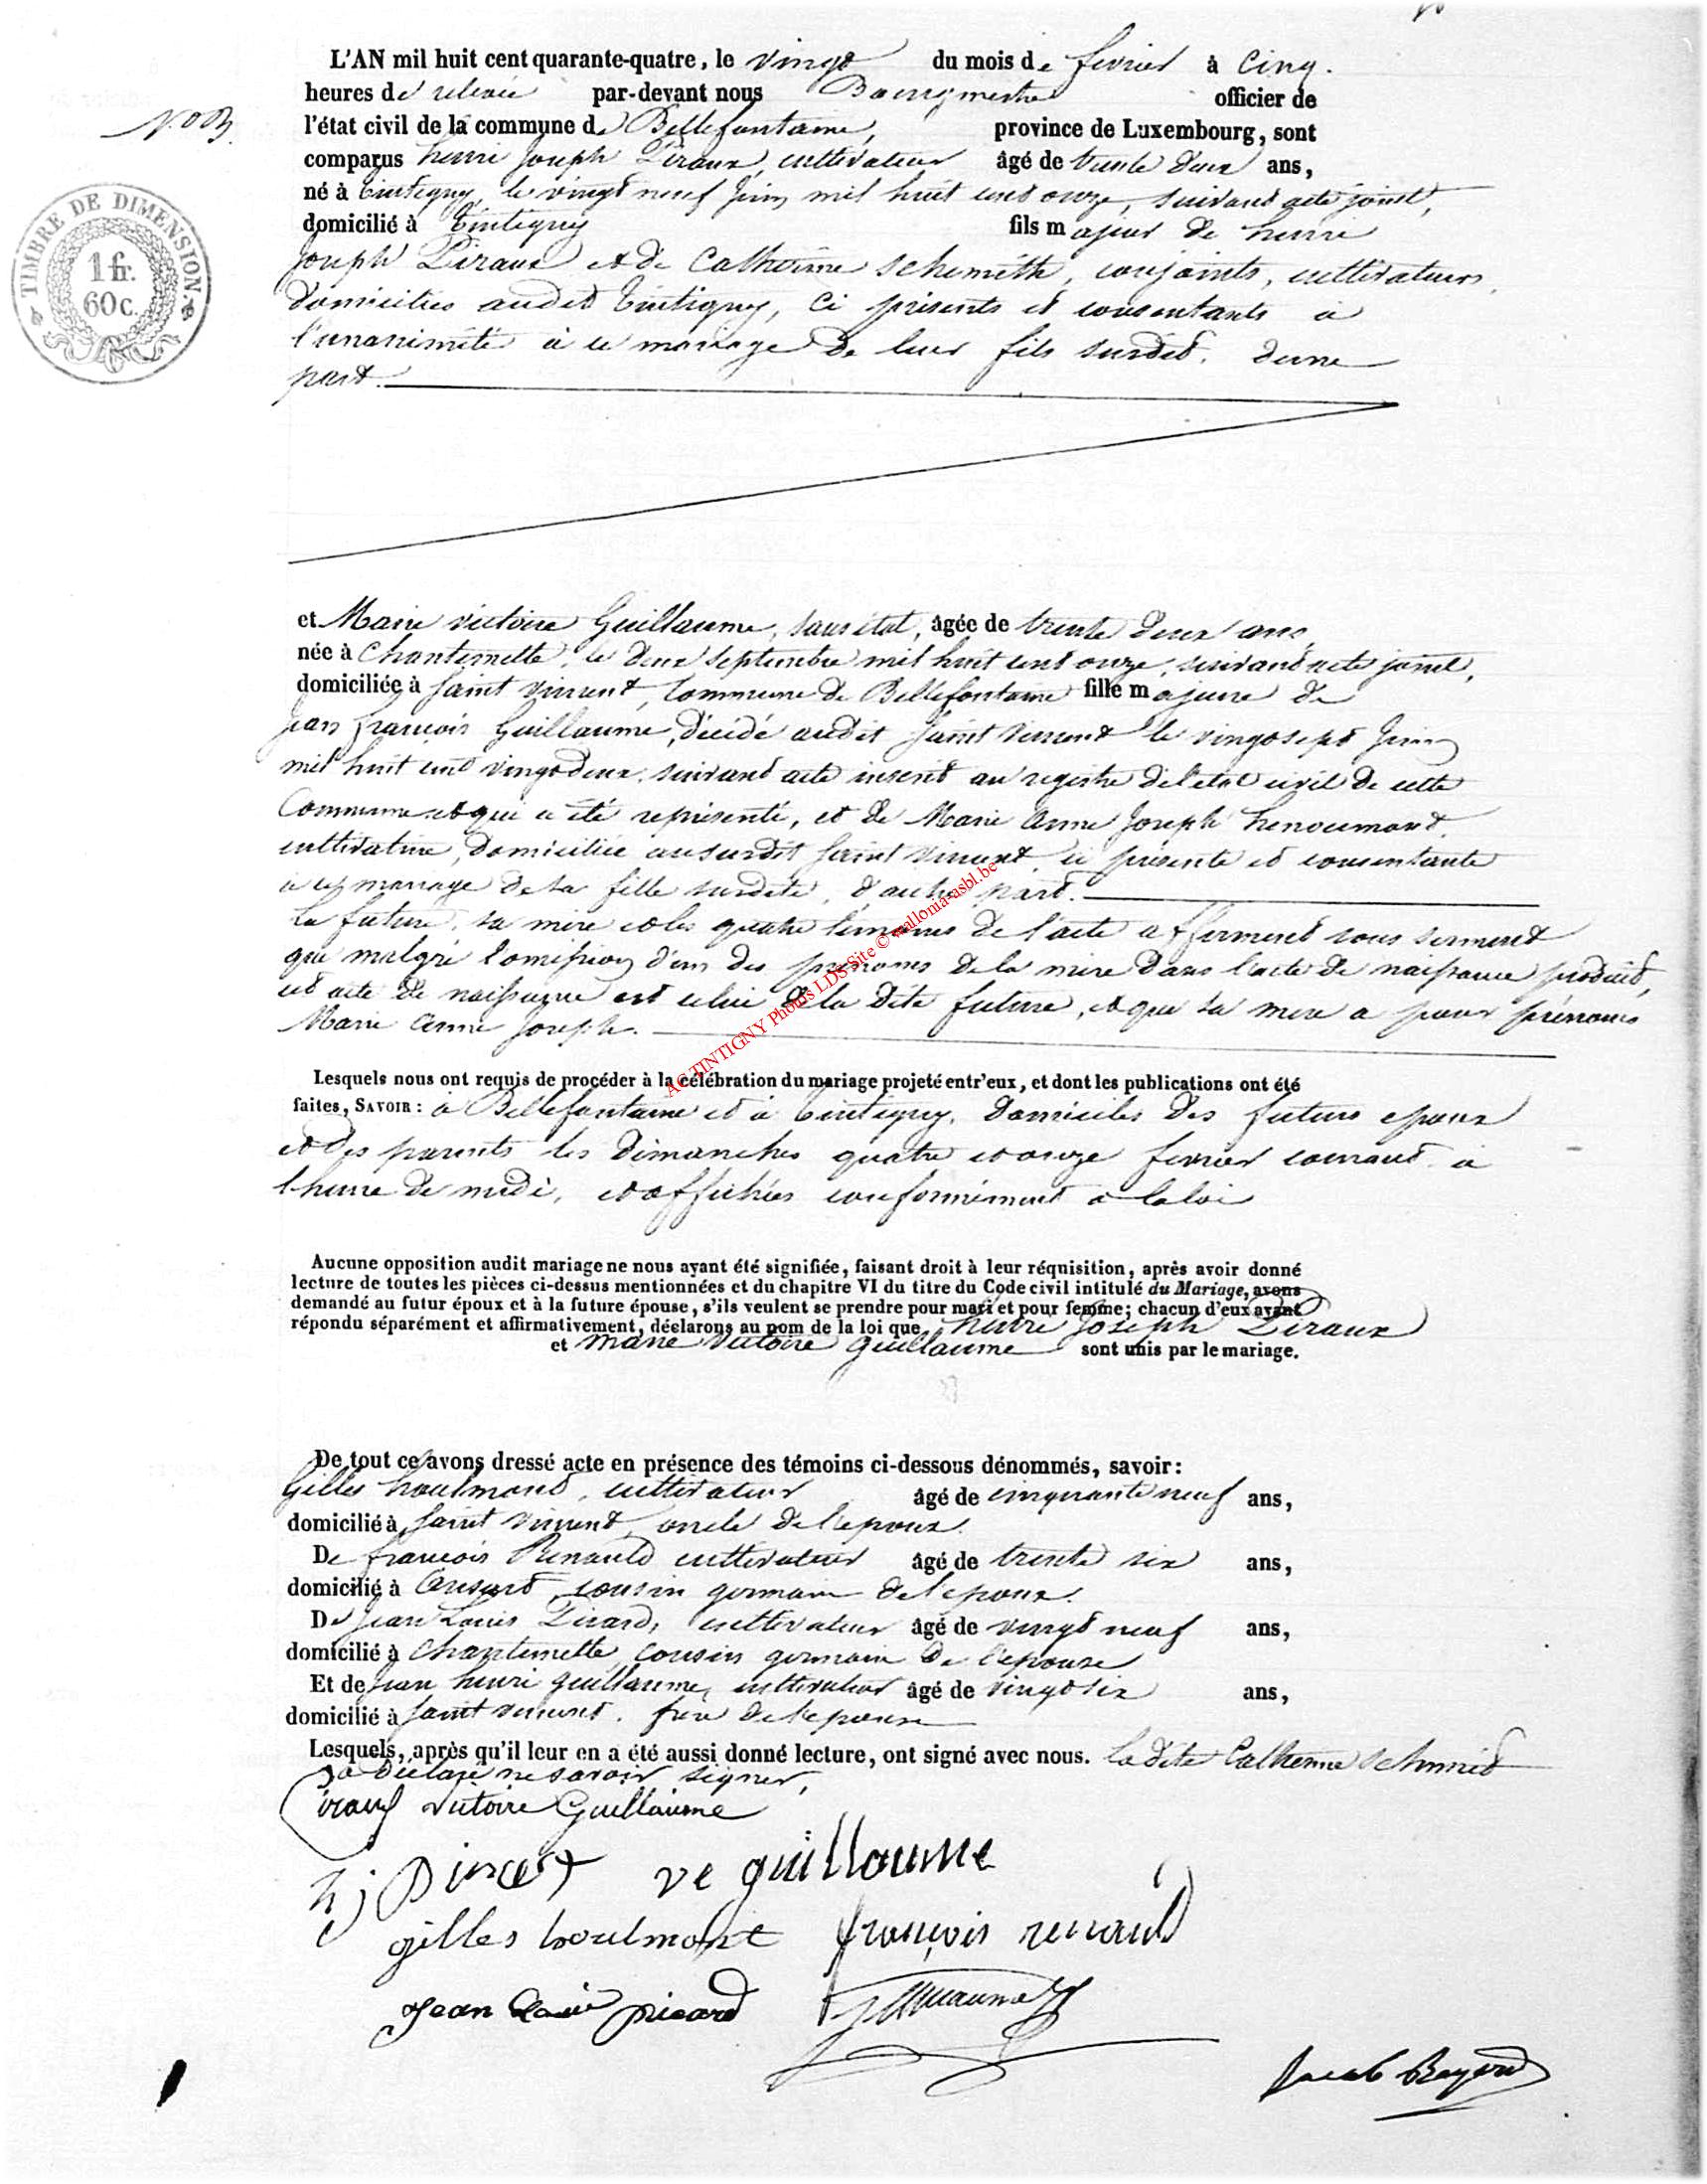 L'AN mil huit cent quarante-quatre, le vingt du mois de fevrier à Cinq
heures de relevée par-devant nous Bourgmestre officier de
N.o B.
l'état civil de la commune de Bellefontaine, province de Luxembourg, sont
comparus henri Joseph Piraux, cultivateur âgé de trente deux ans,
né à tintigny, le vingt neuf Juin mil huit cent onze, suivant acte joint,
domicilié à tintigny fils majeur de henri
Joseph Piraux et de Catherine schemith, conjoints, cultivateurs,
domiciliés audit tintigny, ci présents et consentants à
l'unanimité à ce mariage de leur fils susdit. d'une
part.
TIMBRE DE DIMENSION
1 fr.
60 c.
et Marie victoire Guillaume, sans état, âgée de trente deux ans,
née à Chantemelle, le deux septembre mil huit cent onze, suivant acte joint,
domiciliée à saint vincent, Commune de Bellefontaine fille majeure de
Jean françois Guillaume, décédé audit saint vincent le vingt sept Juin
mil huit cent vingt deux, suivant acte inseré au registre de l'etat civil de cette
Commune et qui a été représenté, et de Marie Anne Joseph henoumont,
cultivatrice, domiciliée au susdit saint vincent, ci présente et consentante
à ce mariage de sa fille susdite, d'autre part.
La future, sa mère et les quatre témoins de l'acte affirment sous serment
que malgré l'omission d'un des prénoms de la mère dans l'acte de naissance produit,
cet acte de naissance est celui de la dite future, et que sa mère a pour prénoms
Marie Anne Joseph.
AC TINTIGNY Photos LDS Site © wallonia-asbl.be
Lesquels nous ont requis de procéder à la célébration du mariage projeté entr'eux, et dont les publications ont été
faites, SAVOIR: à Bellefontaine et à tintigny, domiciles des futurs epoux
et des parents les dimanches quatre et onze fevrier courant à
l'heure de midi, et affichées conformément a la loi
Aucune opposition audit mariage ne nous ayant été signifiée, faisant droit à leur réquisition, après avoir donné
lecture de toutes les pièces ci-dessus mentionnées et du chapitre VI du titre du Code civil intitulé du Mariage, avons
demandé au futur époux et à la future épouse, s'ils veulent se prendre pour mari et pour femme; chacun d'eux ayant
répondu séparément et affirmativement, déclarons au nom de la loi que henri Joseph Piraux
et Marie Victoire Guillaume sont unis par le mariage.
De tout ce avons dressé acte en présence des témoins ci-dessous dénommés, savoir:
Gilles houlmont, cultivateur âgé de cinquante neuf ans,
domicilié à saint vincent, oncle de l'epoux.
De françois Renauld cultivateur âgé de trente six ans,
domicilié à Ansart, cousin germain de l'epoux.
De Jean Louis Picard, cultivateur âgé de vingt neuf ans,
domicilié à Chantemelle, cousin germain de l'epouse
Et de Jean henri guillaume, cultivateur âgé de vingt six ans,
domicilié à saint vincent, frère de l'epouse
Lesquels, après qu'il leur en a été aussi donné lecture, ont signé avec nous. La dite Catherine schmid
a déclaré ne savoir signer,
Piraux victoire Guillaume
hj Piraux ve guillaume
gilles houlmont françois renauld
Jean Louis picard Guillaume
Jacob Reyand